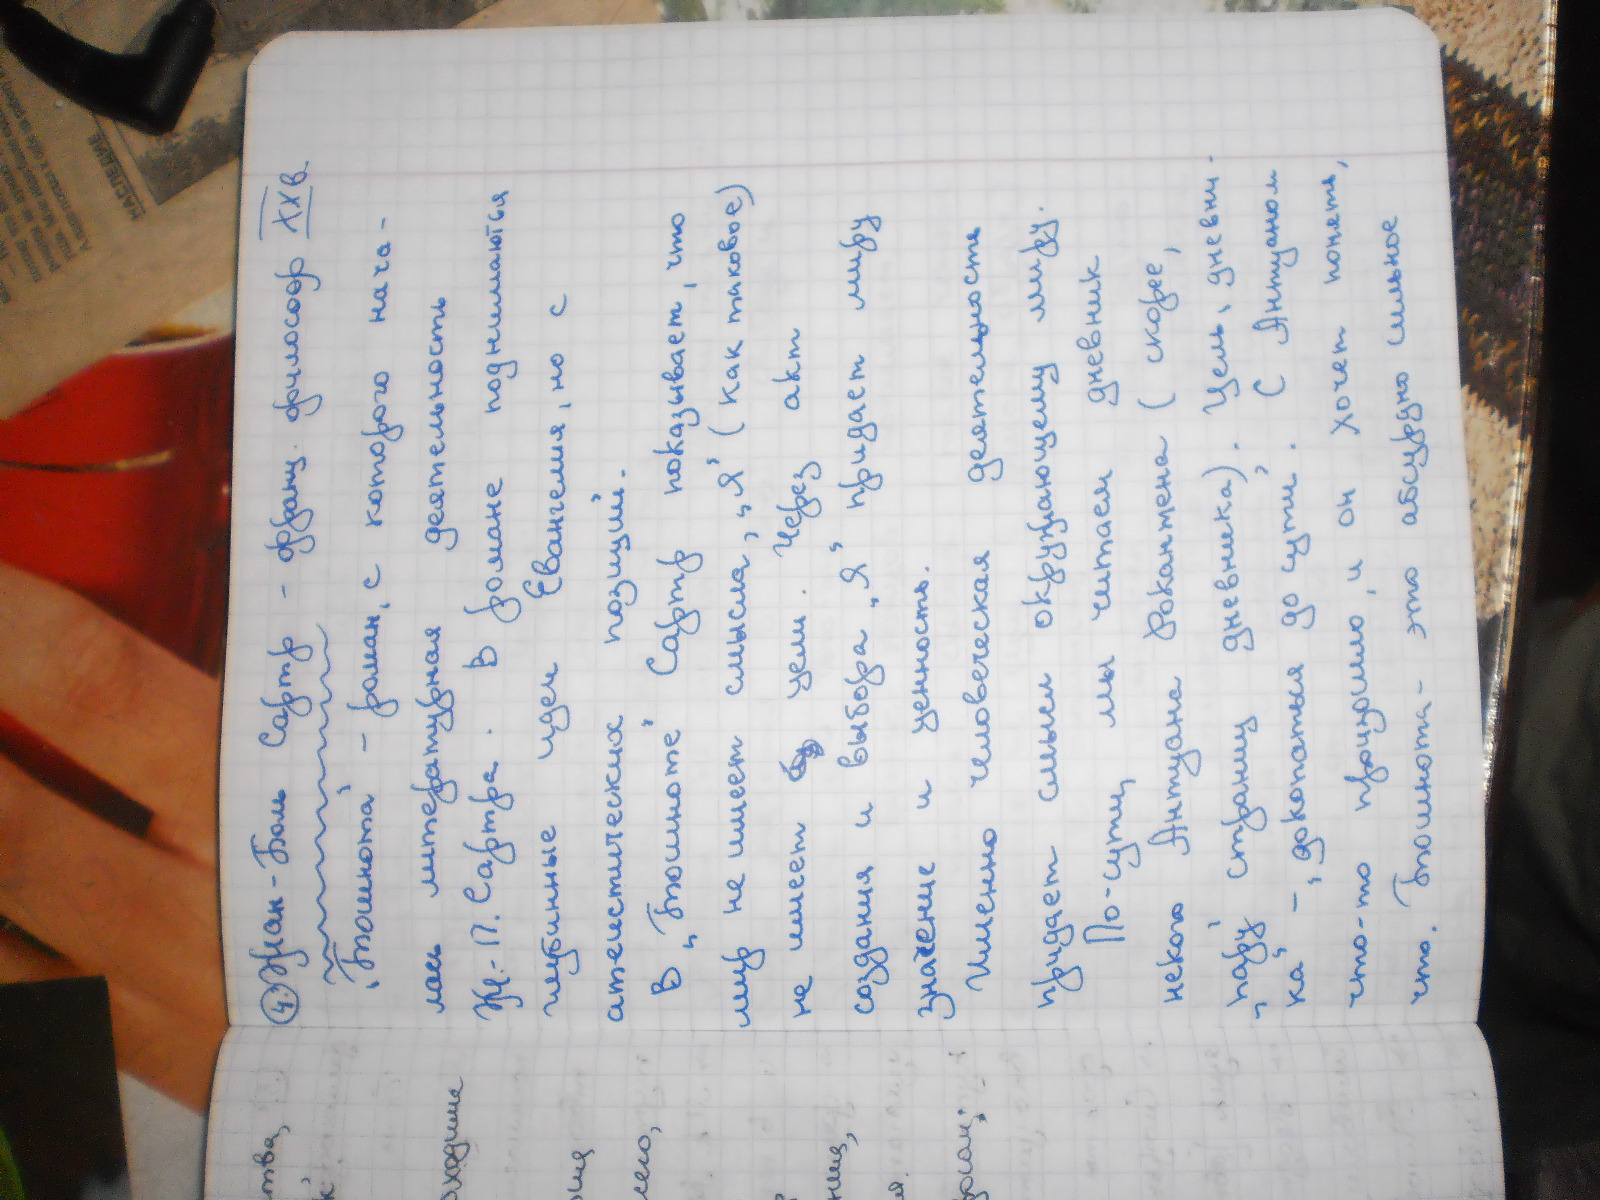 4. Жан-Поль Сартр - франц. философ XXв.
„Тошнота" - роман, с которого нача-
лась литературная деятельность
Ж.-П. Сартра. В романе поднимаются
глубинные идеи Евангелия, но с
атеистических позиций.
В „Тошноте" Сартр показывает, что
мир не имеет смысла, „Я" (как таковое)
не имеет цели. Через акт
создания и выбора „Я" придает миру
значение и ценность.
Именно человеческая деятельность
придает смысл окружающему миру.
По-сути, мы читаем дневник
некого Антуана Рокантена (скорее,
„пару" страниц дневника). Цель „дневни-
ка" - „докопаться до сути". С Антуаном
что-то произошло, и он хочет понять,
что. Тошнота - это абсурдно сильное
ства,
к
оходила
сего,
ниц,
НАСЛЕДИЕ